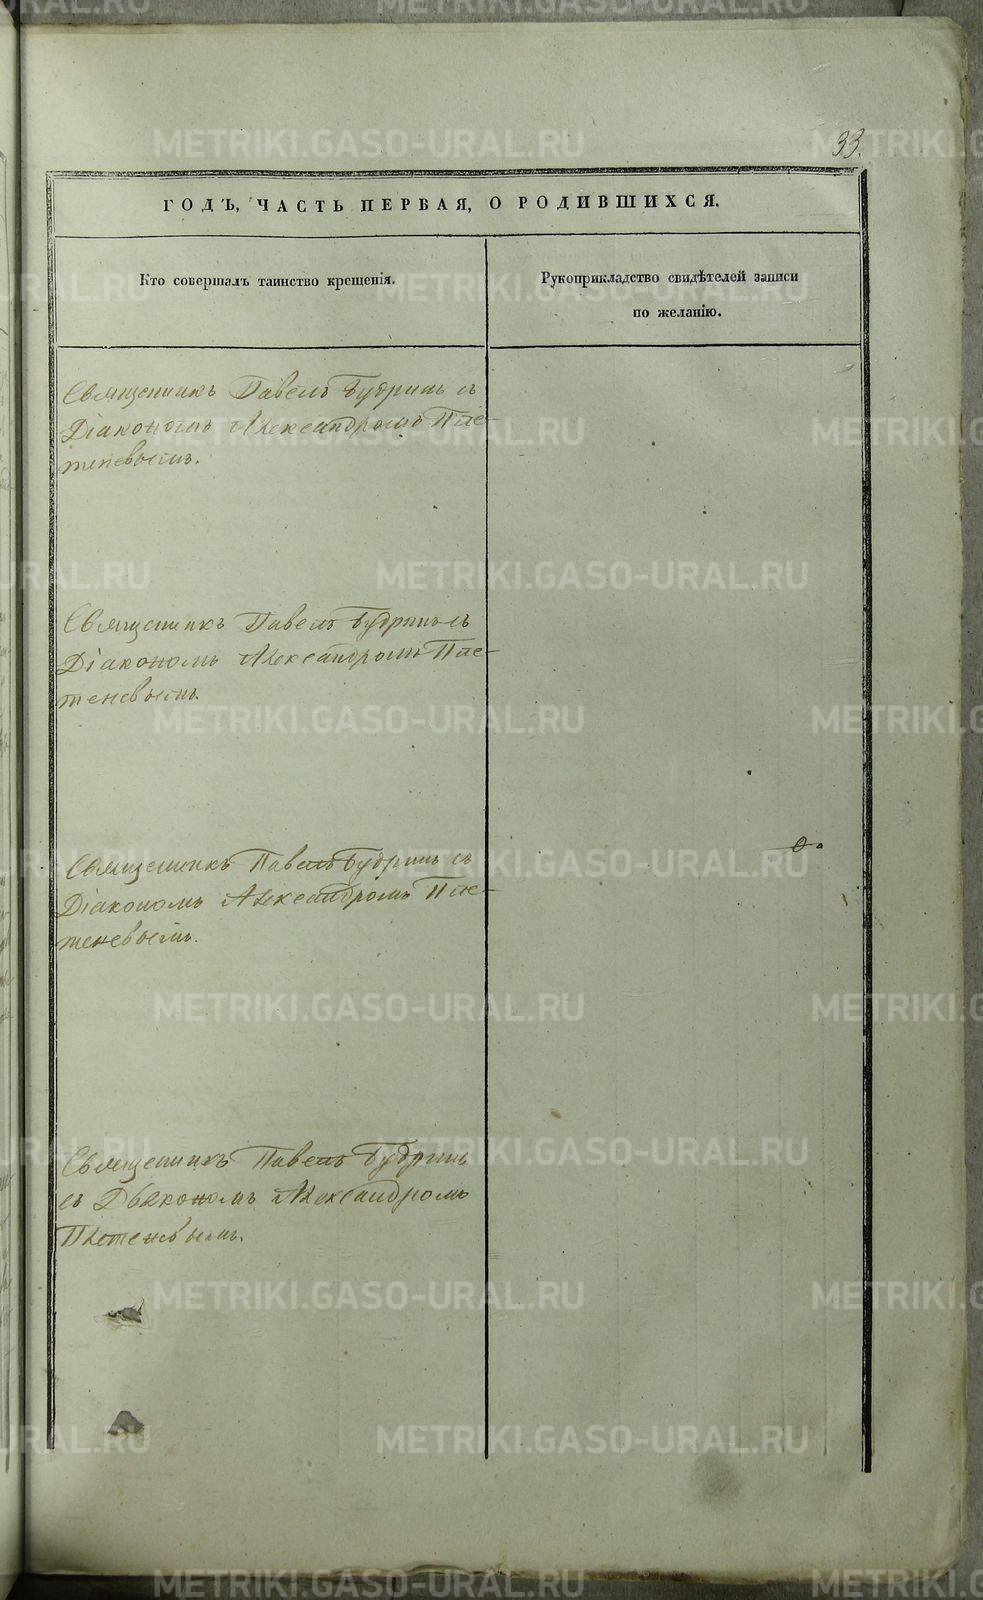 33.
ГОДЪ, ЧАСТЬ ПЕРВАЯ, О РОДИВШИХСЯ.
Кто совершалъ таинство крещенія.
Рукоприкладство свидѣтелей записи
по желанію.
Священникъ Павелъ Будринъ съ
Діакономъ Александромъ Пле-
теневымъ.
Священникъ Павелъ Будринъ съ
Діакономъ Александромъ Пле-
теневымъ.
Священникъ Павелъ Будринъ съ
Діакономъ Александромъ Пле-
теневымъ.
Священникъ Павелъ Будринъ
съ Дьякономъ Александромъ
Плетеневымъ.
METRIKI.GASO-URAL.RU